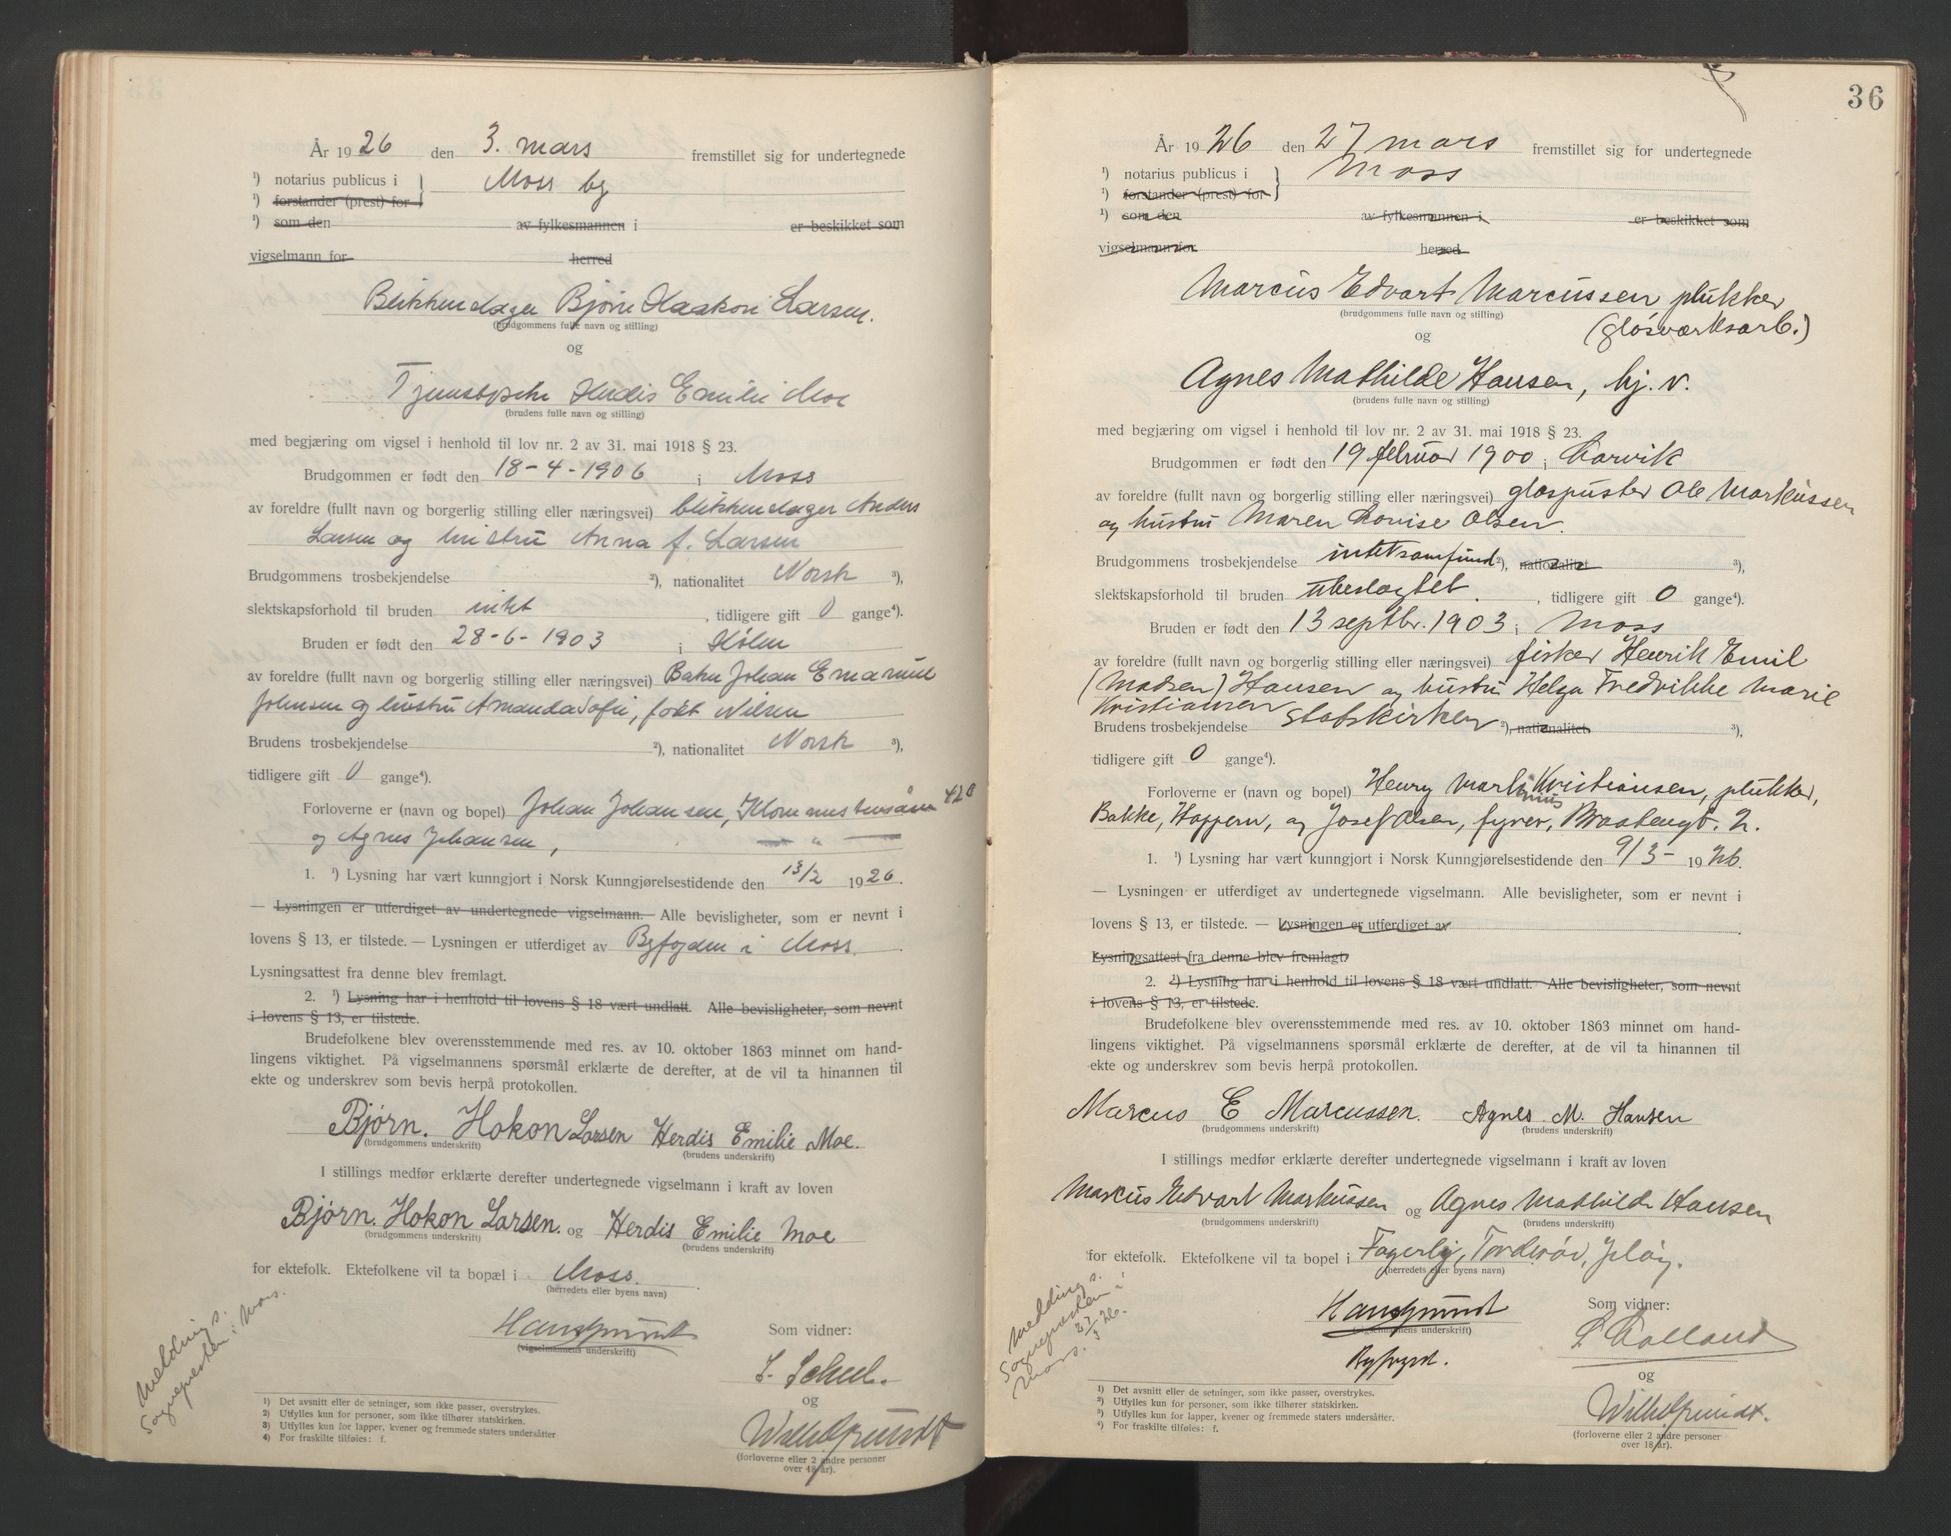 År 1926 den 3. mars fremstillet sig for undertegnede
¹) notarius publicus i } Moss by
¹) forstander (prest) for
¹) som den av fylkesmannen i er beskikket som
vigselmann for herred
Blikkenslager Bjørn Haakon Larsen.
(brudgommens fulle navn og stilling)
og
Herdis Emilie Moe
(brudens fulle navn og stilling)
med begjæring om vigsel i henhold til lov nr. 2 av 31. mai 1918 § 23.
Brudgommen er født den 18-4-1906 i Moss
av foreldre (fullt navn og borgerlig stilling eller næringsvei) blikkenslager Anders
Larsen og hustru Anna f. Larsen
Brudgommens trosbekjendelse ²), nationalitet Norsk ³),
slektskapsforhold til bruden intet, tidligere gift 0 gange⁴).
Bruden er født den 28-6-1903 i
av foreldre (fullt navn og borgerlig stilling eller næringsvei) Johan Emanuel
Johnsen og hustru Amanda Sofie, født Nilsen
Brudens trosbekjendelse ²), nationalitet Norsk ³),
tidligere gift 0 gange⁴).
Forloverne er (navn og bopel) Johan Johansen, 428
og Agnes Johansen, — „ —
1. ¹) Lysning har vært kunngjort i Norsk Kunngjørelsestidende den 13/2 1926.
— Lysningen er utferdiget av undertegnede vigselmann. Alle bevisligheter, som er nevnt i
lovens § 13, er tilstede. — Lysningen er utferdiget av Byfogden i Moss.
Lysningsattest fra denne blev fremlagt.
2. ¹) Lysning har i henhold til lovens § 18 vært undlatt. Alle bevisligheter, som nevnt
i lovens § 13, er tilstede.
Brudefolkene blev overensstemmende med res. av 10. oktober 1863 minnet om hand-
lingens viktighet. På vigselmannens spørsmål erklærte de derefter, at de vil ta hinannen til
ekte og underskrev som bevis herpå protokollen.
Bjørn. Hokon Larsen Herdis Emilie Moe.
(brudgommens underskrift) (brudens underskrift)
I stillings medfør erklærte derefter undertegnede vigselmann i kraft av loven
Bjørn. Hokon Larsen. og Herdis Emilie Moe
(brudgommens underskrift) (brudens underskrift)
for ektefolk. Ektefolkene vil ta bopæl i Moss.
(herredets eller byens navn)
Hans Grundt Som vidner:
(vigselmannens underskrift)
S. Schul.
og
Wilh Grundt
(forloverne eller 2 andre personer
over 18 år).
Meldning s.
Sognepresten i Moss.
1) Det avsnitt eller de setninger, som ikke passer, overstrykes.
2) Utfylles kun for personer, som ikke tilhører statskirken.
3) Utfylles kun for lapper, kvener og fremmede staters undersåtter
4) For fraskilte tilføies: f.
36
År 1926 den 27 mars fremstillet sig for undertegnede
¹) notarius publicus i } Moss
¹) forstander (prest) for
¹) som den av fylkesmannen i er beskikket som
vigselmann for herred
Marcus Edvart Marcussen plukker
(brudgommens fulle navn og stilling)
(glasværksarb.)
og
Agnes Mathilde Hansen, hj. v.
(brudens fulle navn og stilling)
med begjæring om vigsel i henhold til lov nr. 2 av 31. mai 1918 § 23.
Brudgommen er født den 19 februar 1900 i Larvik
av foreldre (fullt navn og borgerlig stilling eller næringsvei) glaspuster Ole Markussen
og hustru Maren Lovise Olsen.
Brudgommens trosbekjendelse intet samfund ²), nationalitet ³),
slektskapsforhold til bruden ubeslægtet., tidligere gift 0 gange⁴).
Bruden er født den 13 septbr. 1903 i Moss
av foreldre (fullt navn og borgerlig stilling eller næringsvei) fisker Henrik Emil
(Madsen) Hansen og hustru Helga Fredrikke Marie
Kristiansen
Brudens trosbekjendelse statskirken ²), nationalitet ³),
tidligere gift 0 gange⁴).
Forloverne er (navn og bopel) Henry Martinius Kristiansen, plukker,
Bakke, Hoppern, og Josef Olsen, fyrer, Braatengt. 2.
1. ¹) Lysning har vært kunngjort i Norsk Kunngjørelsestidende den 9/3- 1926.
— Lysningen er utferdiget av undertegnede vigselmann. Alle bevisligheter, som er nevnt i
lovens § 13, er tilstede. — Lysningen er utferdiget av
Lysningsattest fra denne blev fremlagt.
2. ¹) Lysning har i henhold til lovens § 18 vært undlatt. Alle bevisligheter, som nevnt
i lovens § 13, er tilstede.
Brudefolkene blev overensstemmende med res. av 10. oktober 1863 minnet om hand-
lingens viktighet. På vigselmannens spørsmål erklærte de derefter, at de vil ta hinannen til
ekte og underskrev som bevis herpå protokollen.
Marcus E Marcussen. Agnes. M. Hansen
(brudgommens underskrift) (brudens underskrift)
I stillings medfør erklærte derefter undertegnede vigselmann i kraft av loven
Marcus Edvart Markussen og Agnes Mathilde Hansen
(brudgommens underskrift) (brudens underskrift)
for ektefolk. Ektefolkene vil ta bopel i Fagerli, Torderød, Jeløy.
(herredets eller byens navn)
Hans Grundt Som vidner:
(vigselmannens underskrift)
Byfogd.
og
Wilh Grundt.
(forloverne eller 2 andre personer
over 18 år).
Meldning s.
Sognepresten i
Moss. 27/3 26.
1) Det avsnitt eller de setninger, som ikke passer, overstrykes.
2) Utfylles kun for personer, som ikke tilhører statskirken.
3) Utfylles kun for lapper, kvener og fremmede staters undersåtter.
4) For fraskilte tilføies: f.